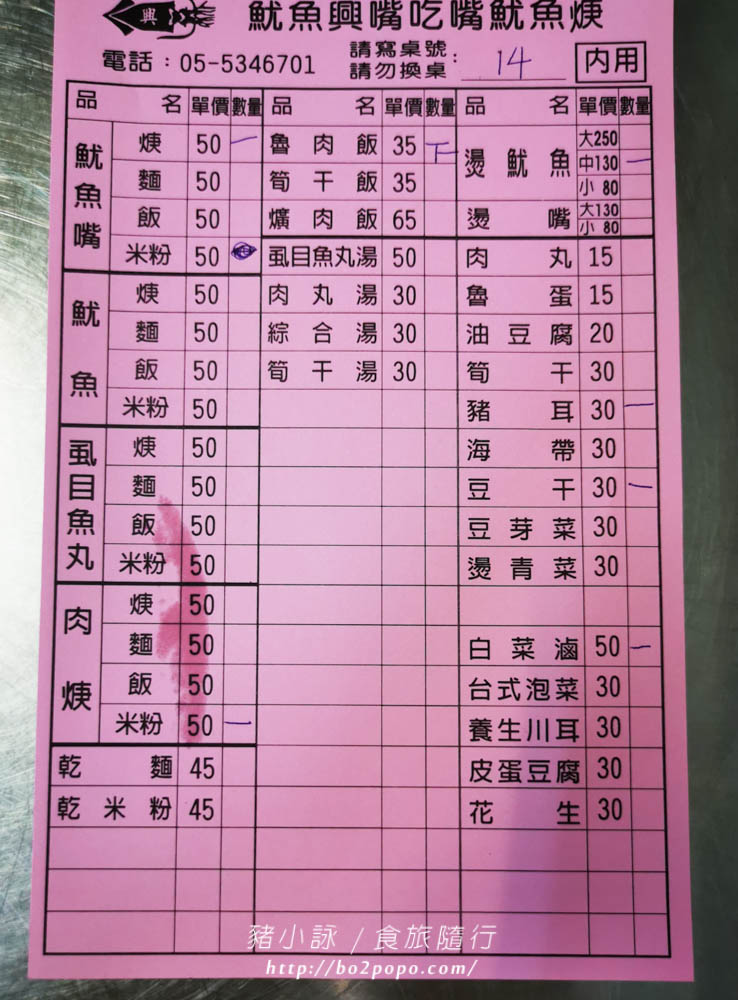 興 魷魚興嘴吃嘴魷魚焿
電話：05-5346701 請寫桌號 請勿換桌： 14 內用
品名 單價 數量 品名 單價 數量 品名 單價 數量
魷魚嘴 焿 50 一 魯肉飯 35 下 燙魷魚 大250 中130 一 小 80
麵 50 筍干飯 35
飯 50 爌肉飯 65 燙嘴 大130 小 80
米粉 50 虱目魚丸湯 50 肉丸 15
魷魚 焿 50 肉丸湯 30 魯蛋 15
麵 50 綜合湯 30 油豆腐 20
飯 50 筍干湯 30 筍干 30
米粉 50 豬耳 30 一
虱目魚丸 焿 50 海帶 30
麵 50 豆干 30 一
飯 50 豆芽菜 30
米粉 50 燙青菜 30
肉焿 焿 50
麵 50 白菜滷 50 一
飯 50 台式泡菜 30
米粉 50 一 養生川耳 30
乾麵 45 皮蛋豆腐 30
乾米粉 45 花生 30
豬小詠 / 食旅隨行
http://bo2popo.com/